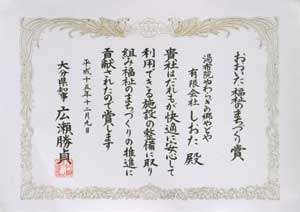 おおいた福祉のまちづくり賞
湯布院やわらぎの郷やどや
有限会社 しおた 殿
貴社はだれもが快適に安心して
利用できる施設の整備に取り
組み福祉のまちづくりの推進に
貢献されたので賞します
平成十五年十二月九日
大分県知事 広瀬勝貞